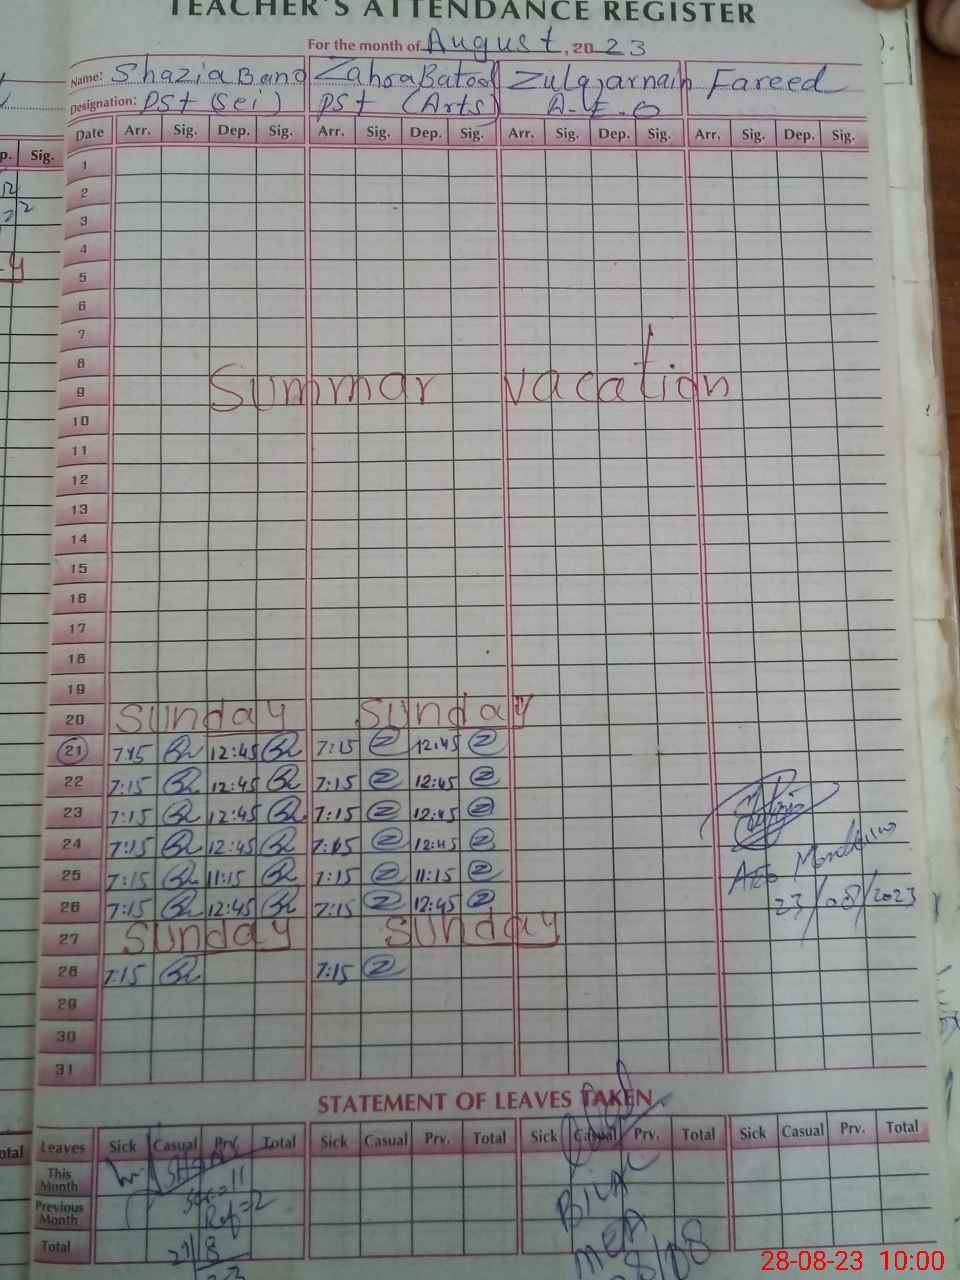 TEACHER'S ATTENDANCE REGISTER
For the month of August, 2023
Name: Shazia Bano Zahra Batool Zulqarnain Fareed
Designation: PST (Sci) PST (Arts) A.E.O
Date Arr. Sig. Dep. Sig. Arr. Sig. Dep. Sig. Arr. Sig. Dep. Sig. Arr. Sig. Dep. Sig.
p. Sig.
1
2
3
4
5
6
7
8
9 Summar vacation
10
11
12
13
14
15
16
17
18
19
20 Sunday Sunday
21 7:15 12:45 7:15 12:45
22 7:15 12:45 7:15 12:45
23 7:15 12:45 7:15 12:45
24 7:15 12:45 7:15 12:45
25 7:15 11:15 7:15 11:15
26 7:15 12:45 7:15 12:45
AEO
23/08/2023
27 Sunday Sunday
28 7:15 7:15
29
30
31
STATEMENT OF LEAVES TAKEN
Leaves Sick Casual Prv. Total Sick Casual Prv. Total Sick Casual Prv. Total Sick Casual Prv. Total
This Month
Previous Month
Total
otal
MEA
28-08-23 10:00